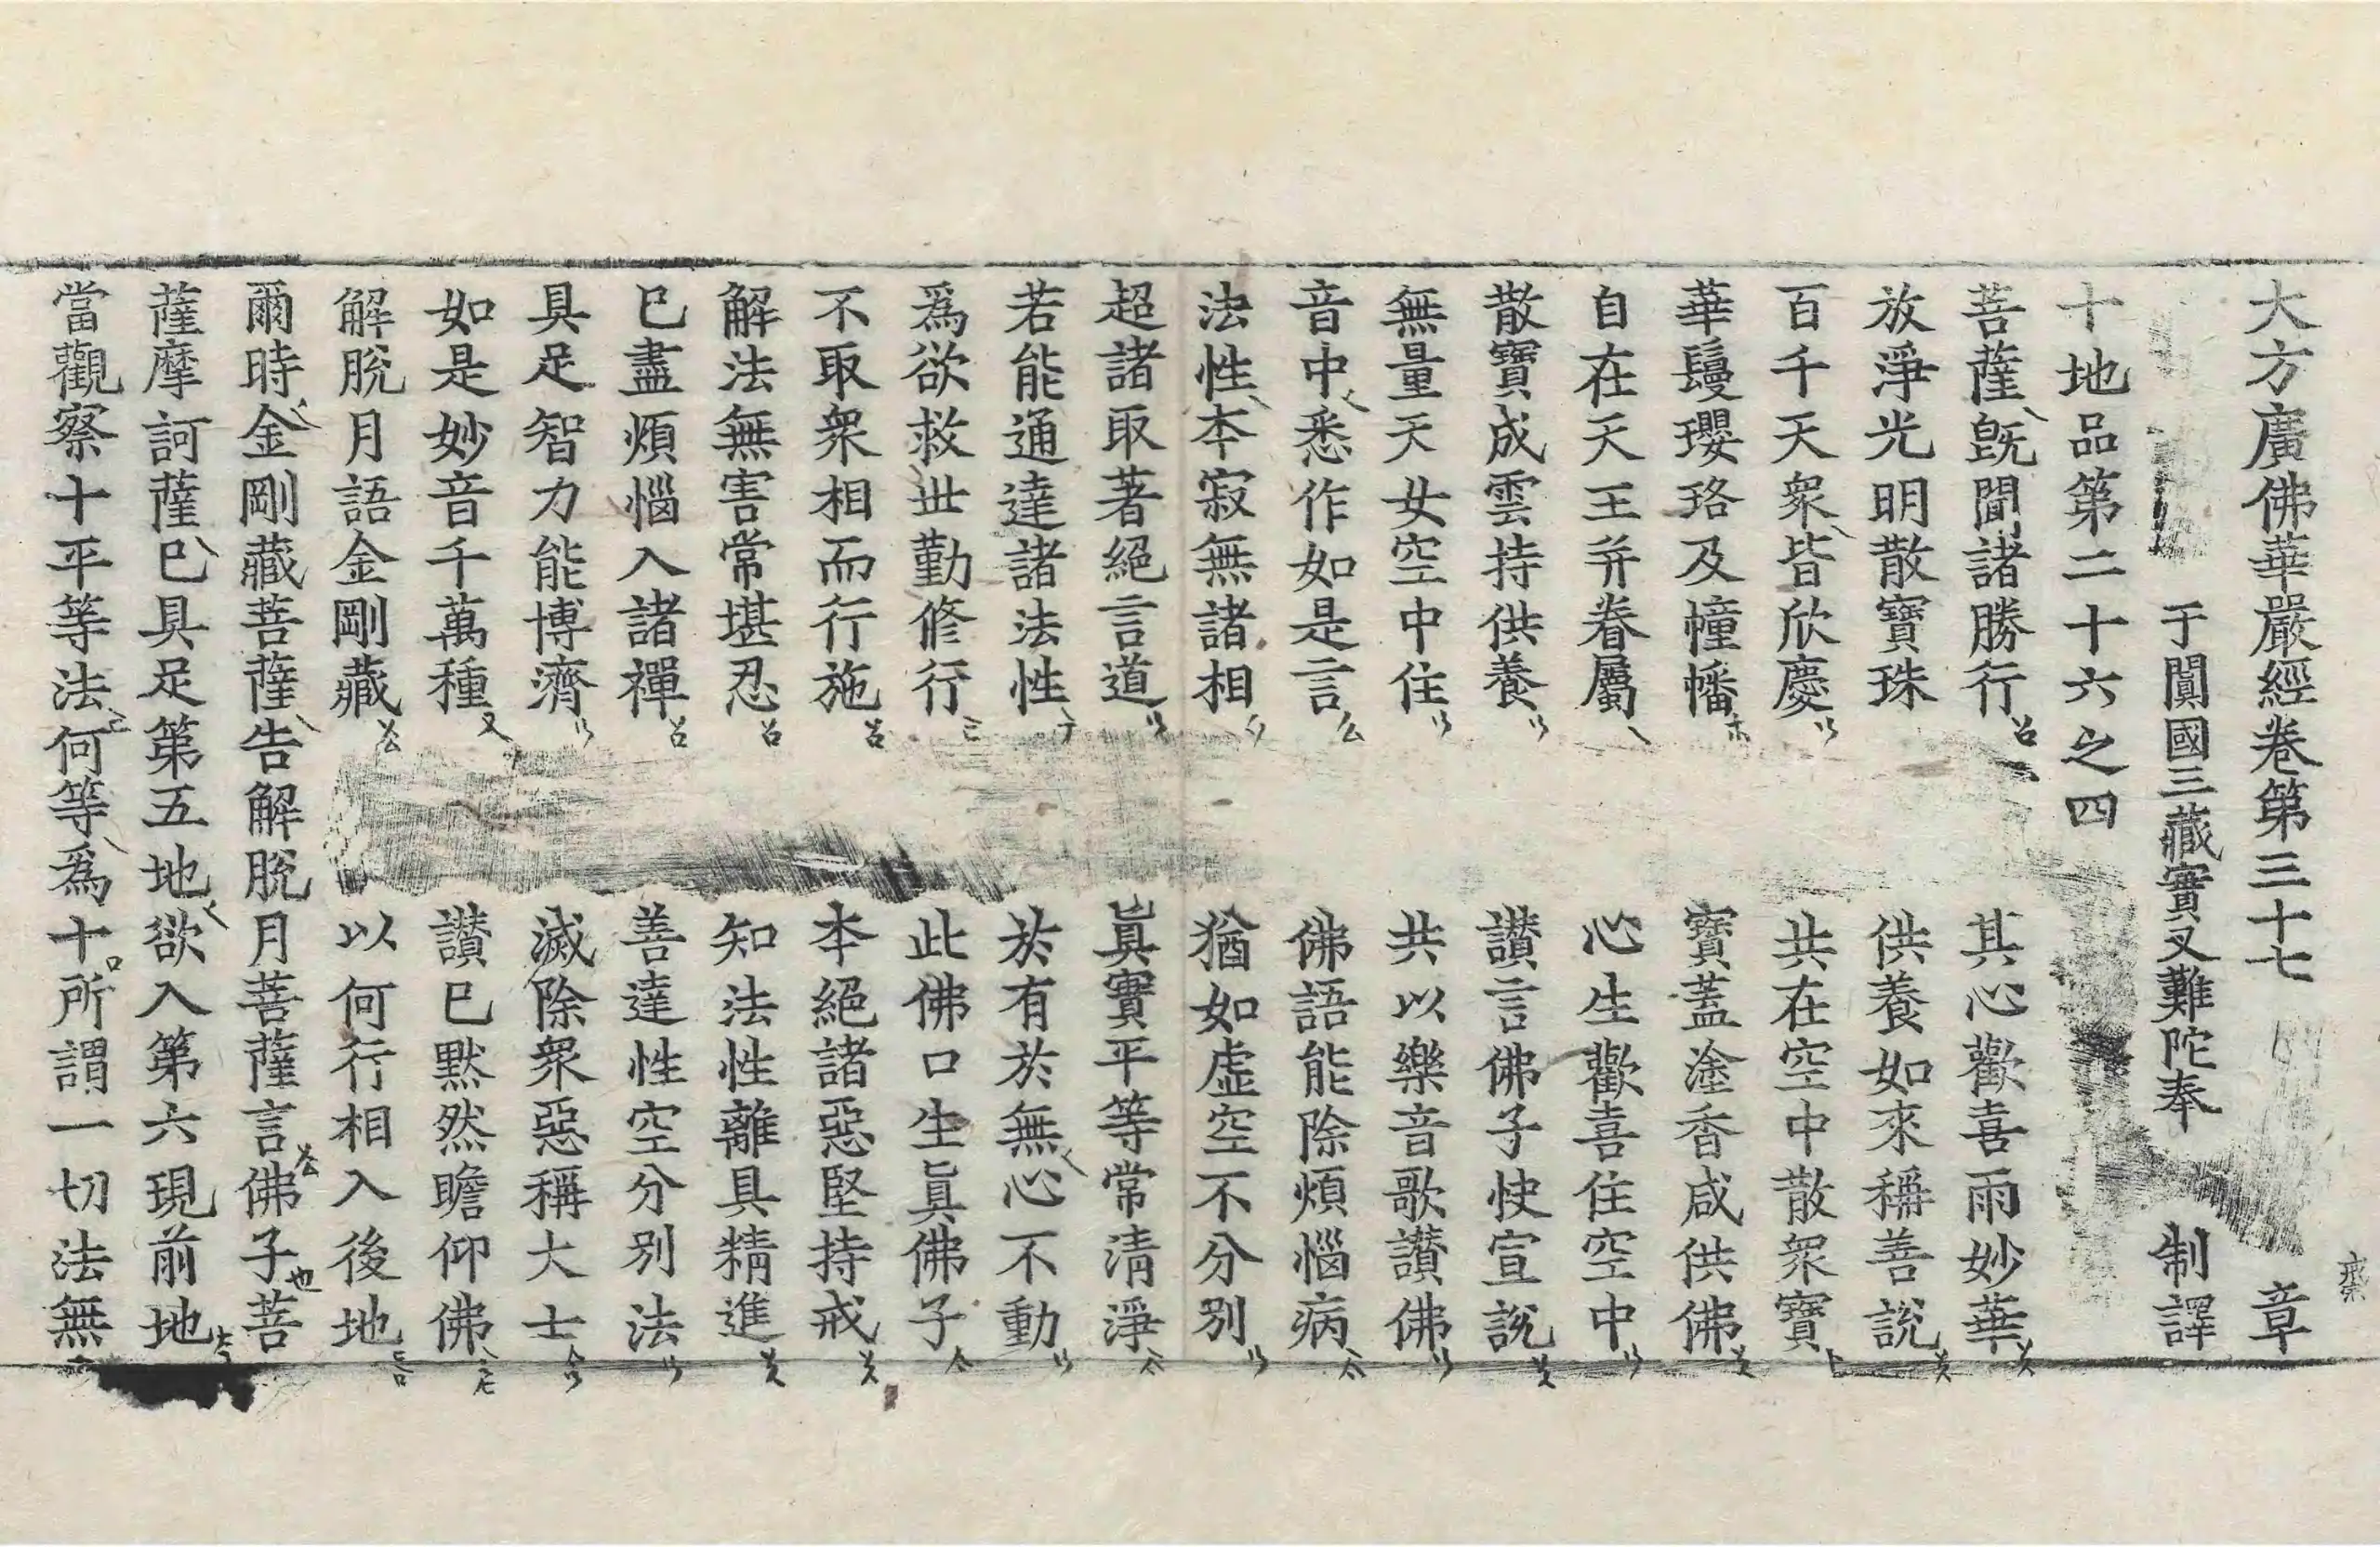 大方廣佛華嚴經卷第三十七 章
于闐國三藏實叉難陀奉 制譯
十地品第二十六之四
菩薩旣聞諸勝行 其心歡喜雨妙華
放淨光明散寶珠 供養如來稱善說
百千天衆皆欣慶 共在空中散衆寶
華鬘瓔珞及幢幡 寶蓋塗香咸供佛
自在天王并眷屬 心生歡喜住空中
散寶成雲持供養 讃言佛子快宣說
無量天女空中住 共以樂音歌讃佛
音中悉作如是言 佛語能除煩惱病
法性本寂無諸相 猶如虛空不分別
超諸取著絕言道 眞實平等常清淨
若能通達諸法性 於有於無心不動
爲欲救世勤修行 此佛口生眞佛子
不取衆相而行施 本絕諸惡堅持戒
解法無害常堪忍 知法性離具精進
已盡煩惱入諸禪 善達性空分別法
具足智力能博濟 滅除衆惡稱大士
如是妙音千萬種 讃已默然瞻仰佛
解脫月語金剛藏 以何行相入後地
爾時金剛藏菩薩告解脫月菩薩言佛子菩
薩摩訶薩已具足第五地欲入第六現前地
當觀察十平等法何等爲十所謂一切法無